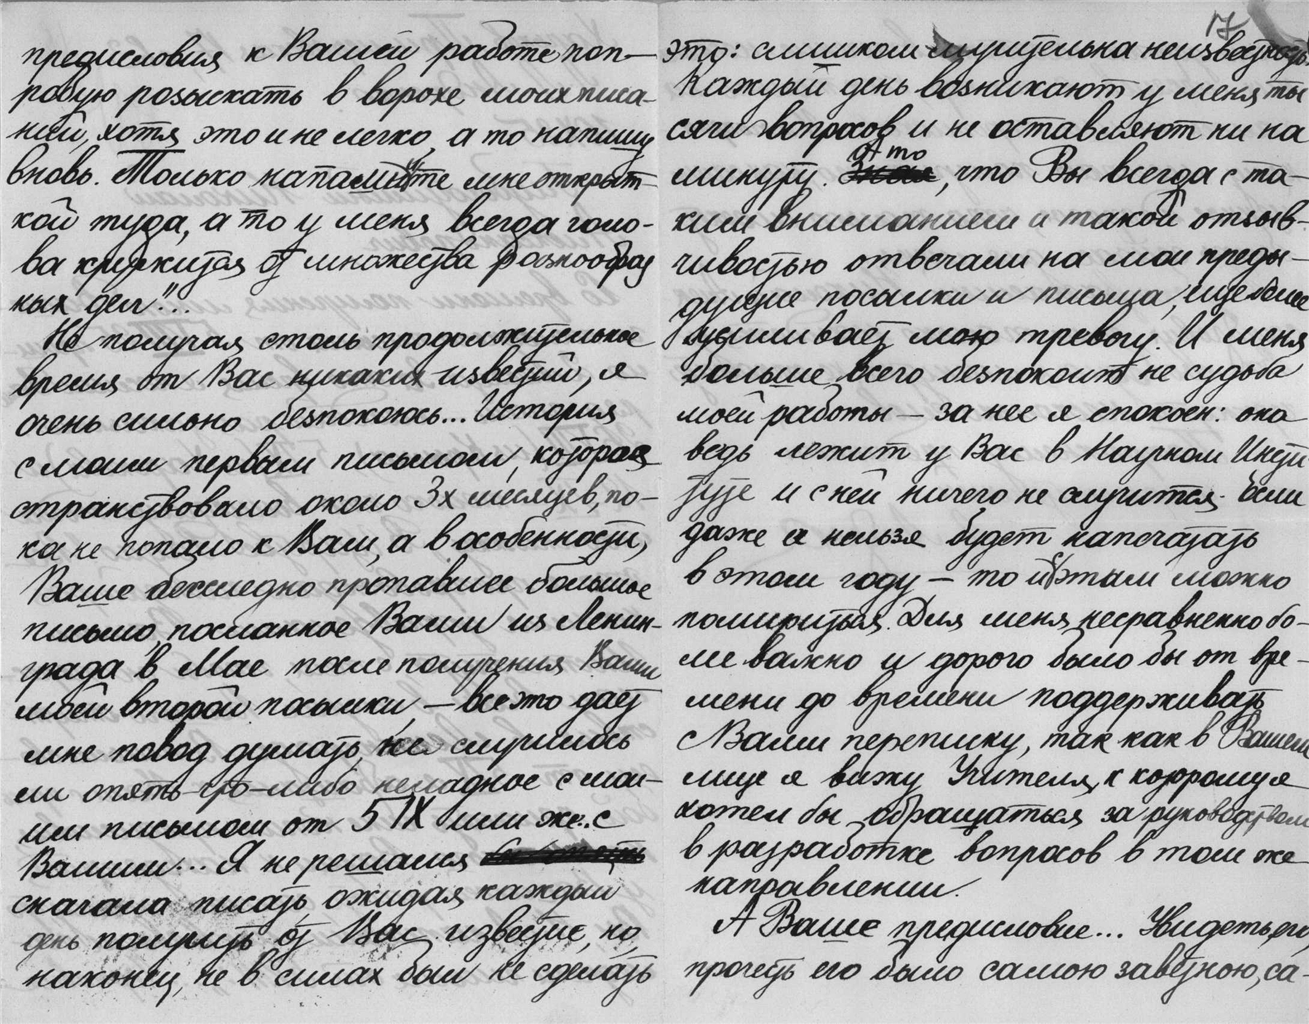 предисловия к Вашей работе поп-
робую розыскать в ворохе моих писа-
ний, хотя это и не легко, а то напишу
вновь. Только напомните мне открыт-
кой туда, а то у меня всегда голо-
ва кружится от множества разнообраз
ных дел"...
Не получая столь продолжительное
время от Вас никаких известий, я
очень сильно безпокоюсь... История
с моим первым письмом, которое
странствовало около 3х месяцев, по-
ка не попало к Вам, а в особенности,
Ваше бесследно пропавшее большое
письмо, посланное Вами из Ленин-
града в Мае после получения Вами
моей второй посылки, — все это дает
мне повод думать, не случилось
ли опять что-либо неладное с мои-
им письмом от 5 IX или же с
Вашим... Я не решался
сначала писать ожидая каждый
день получить от Вас известие, но,
наконец, не в силах был не сделать
17
это: слишком мучительна неизвестность.
Каждый день возникают у меня ты
сячи вопросов и не оставляют ни на
минуту. А то, что Вы всегда с та-
ким вниманием и такой отзыв-
чивостью отвечали на мои преды-
дущие посылки и письма, еще более
усиливает мою тревогу. И меня
больше всего безпокоит не судьба
моей работы — за нее я спокоен: она
ведь лежит у Вас в Научном Инсти
туте и с ней ничего не случится. Если
даже ее нельзя будет напечатать
в этом году — то и с этим можно
помириться. Для меня несравненно бо-
лее важно и дорого было бы от вре-
мени до времени поддерживать
с Вами переписку, так как в Вашем
лице я вижу Учителя, к которому я
хотел бы обращаться за руководством
в разработке вопросов в том же
направлении.
А Ваше предисловие... Увидеть его,
прочесть его было самою заветною, са-